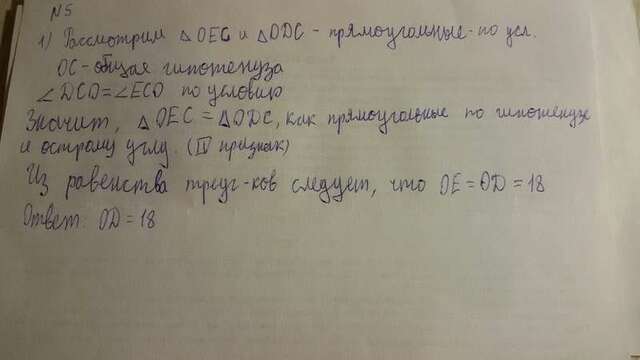 N5
1) Рассмотрим △OEC и △ODC - прямоугольные - по усл.
OC - общая гипотенуза
∠DCO = ∠ECO по условию
Значит, △OEC = △ODC, как прямоугольные по гипотенузе
и острому углу. (IV признак)
Из равенства треуг-ков следует, что OE = OD = 18
Ответ: OD = 18